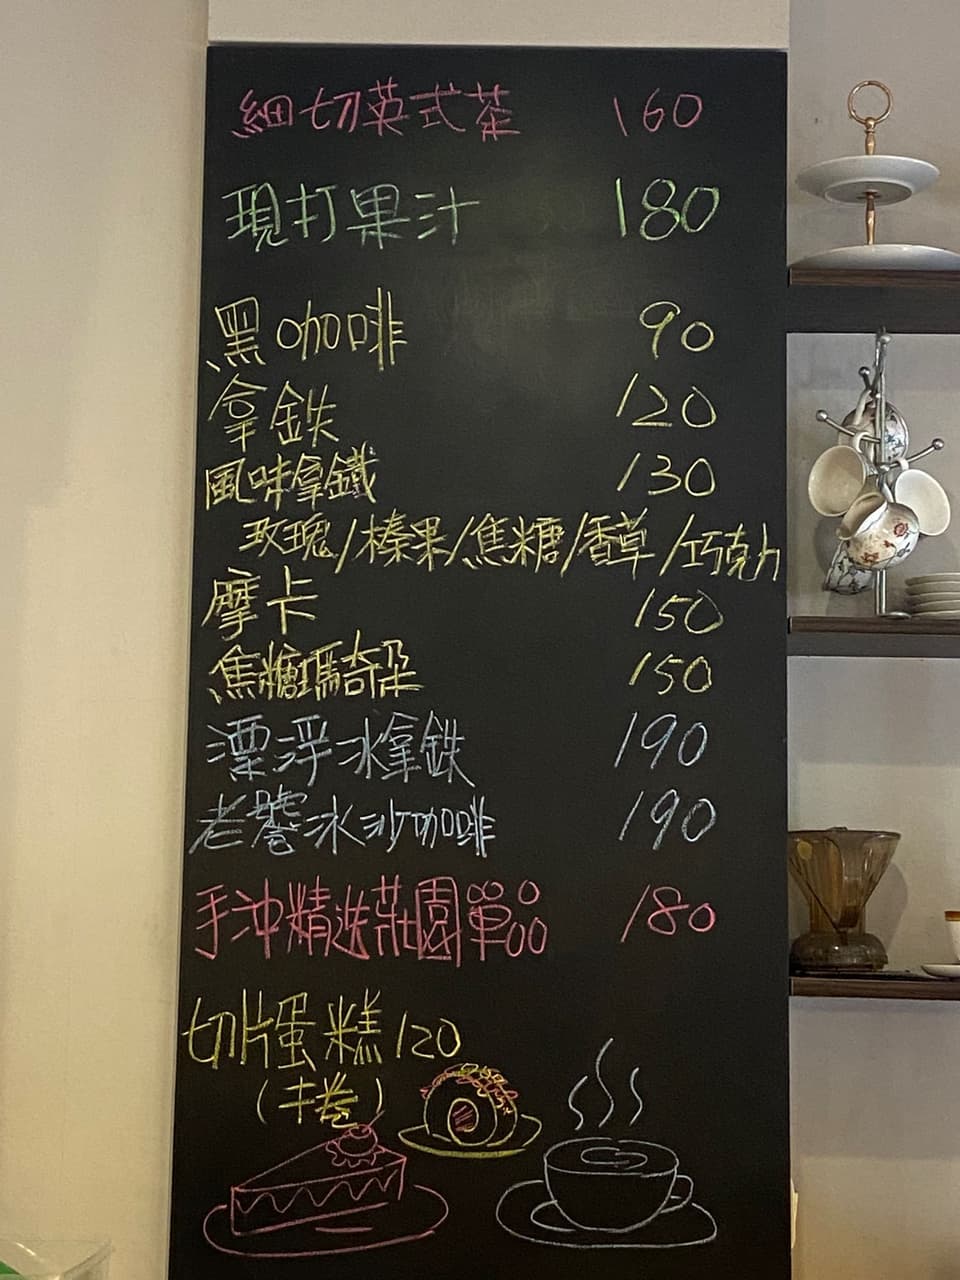 細切英式茶 160
現打果汁 180
黑咖啡 90
拿鉄 120
風味拿鐵 130
玫瑰/榛果/焦糖/香草/巧克力
摩卡 150
焦糖瑪奇朵 150
漂浮冰拿鉄 190
老饕冰沙咖啡 190
手沖精选莊園單品 180
切片蛋糕 120
(卷)